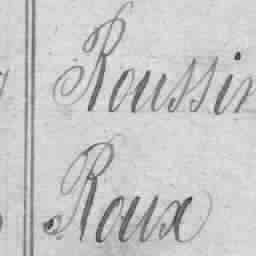 Roussin
Roux